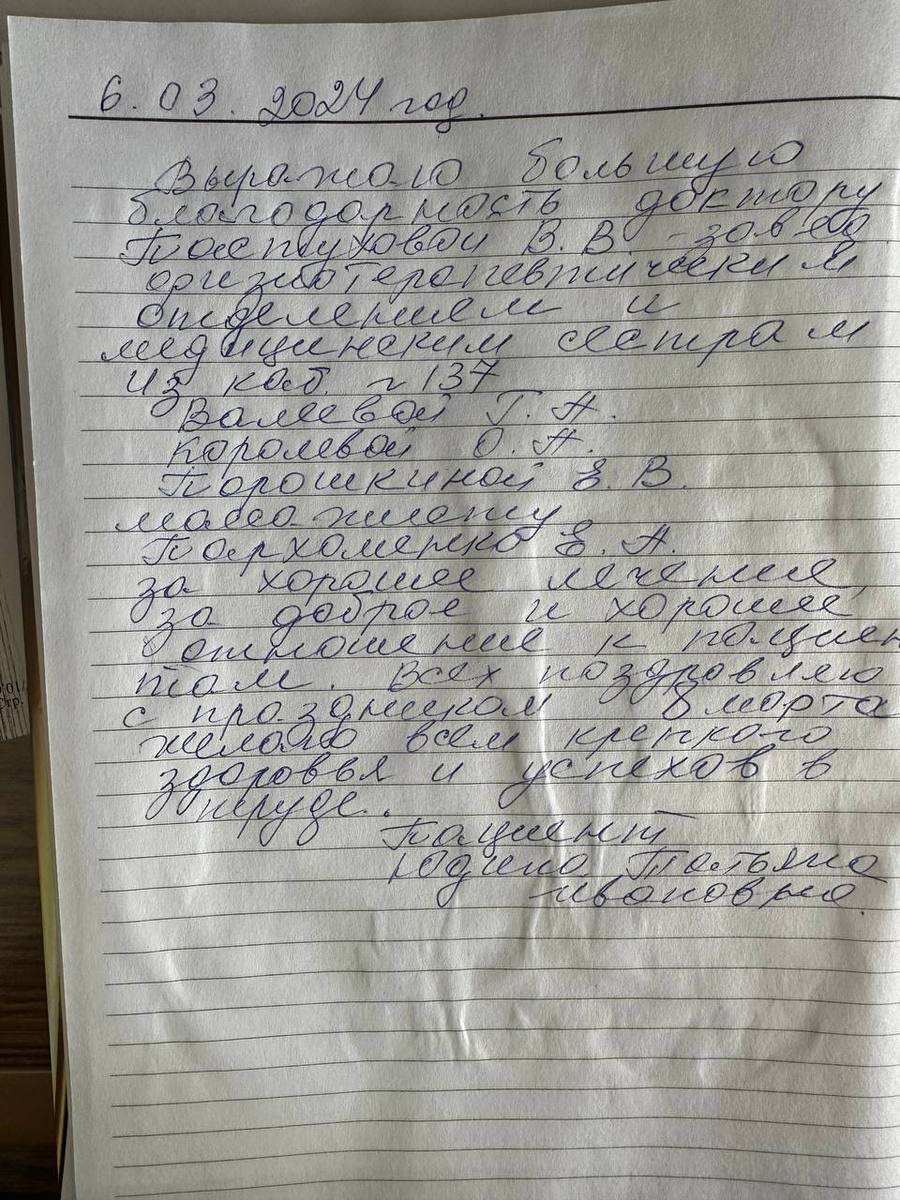 6. 03. 2024 год.
Выражаю большую
благодарность доктору
Пастуховой В. В - завед
физиотерапевтическим
отделением и
медицинским сестрам
из каб. № 137
Валеевой Г. А.
Королевой О. А.
Порошкиной Е. В.
массажисту
Пархоменко Е. А.
за хорошее лечение,
за доброе и хорошее
отношение к пациен
там. Всех поздравляю
с праздником 8 марта
желаю всем крепкого
здоровья и успехов в
труде.
Пациент
Юдина Татьяна
Ивановна.